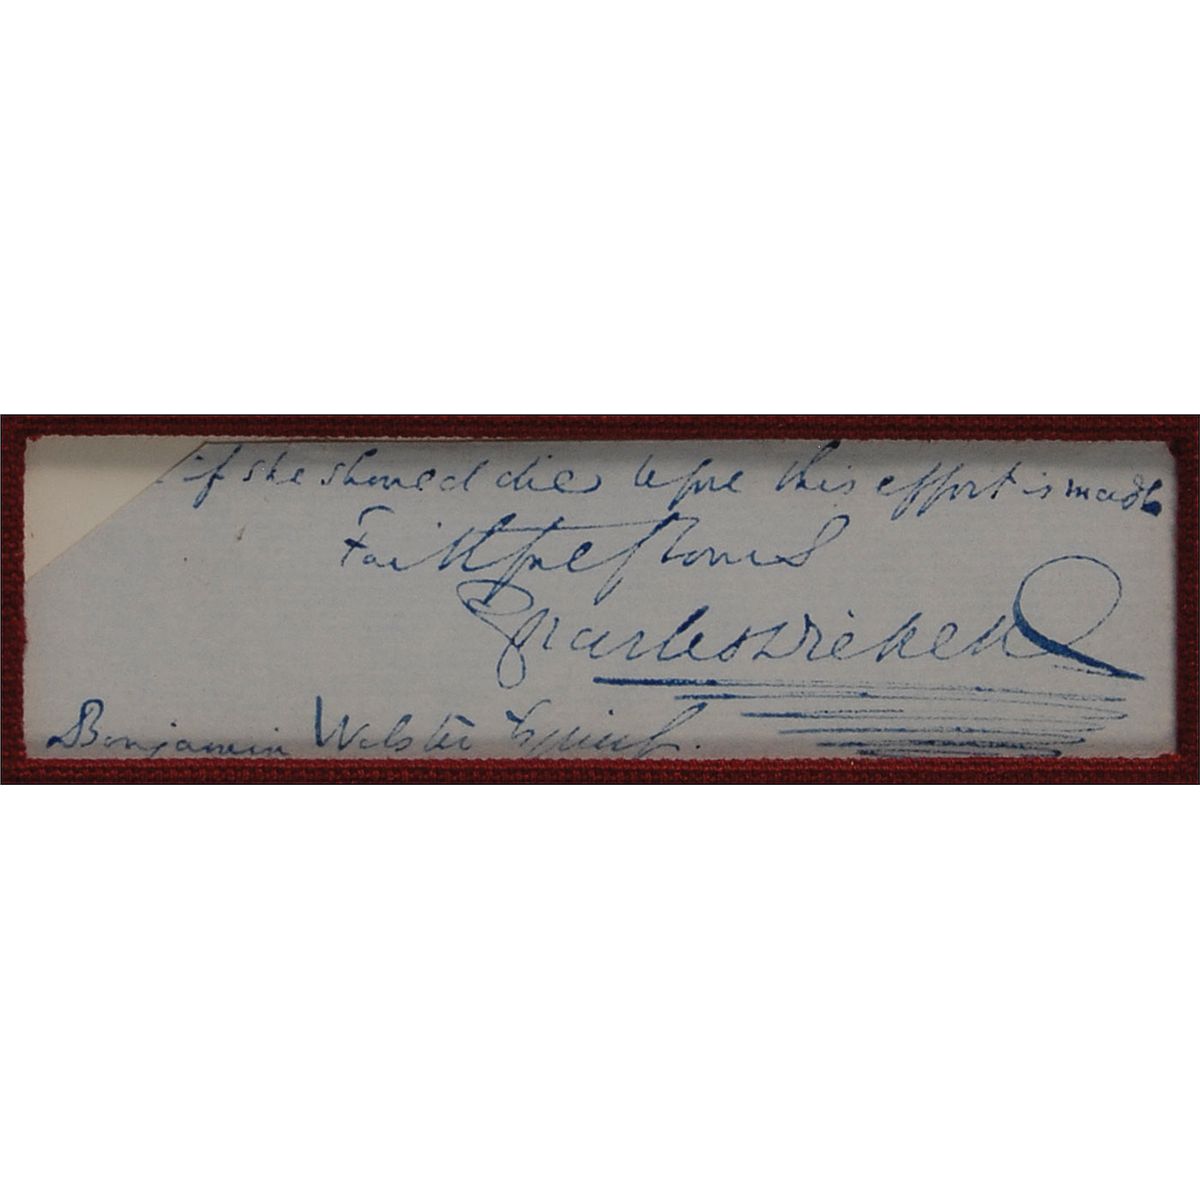 if she should die before this effort is made
Faithfully Yours
Charles Dickens
Benjamin Webster Esquire.